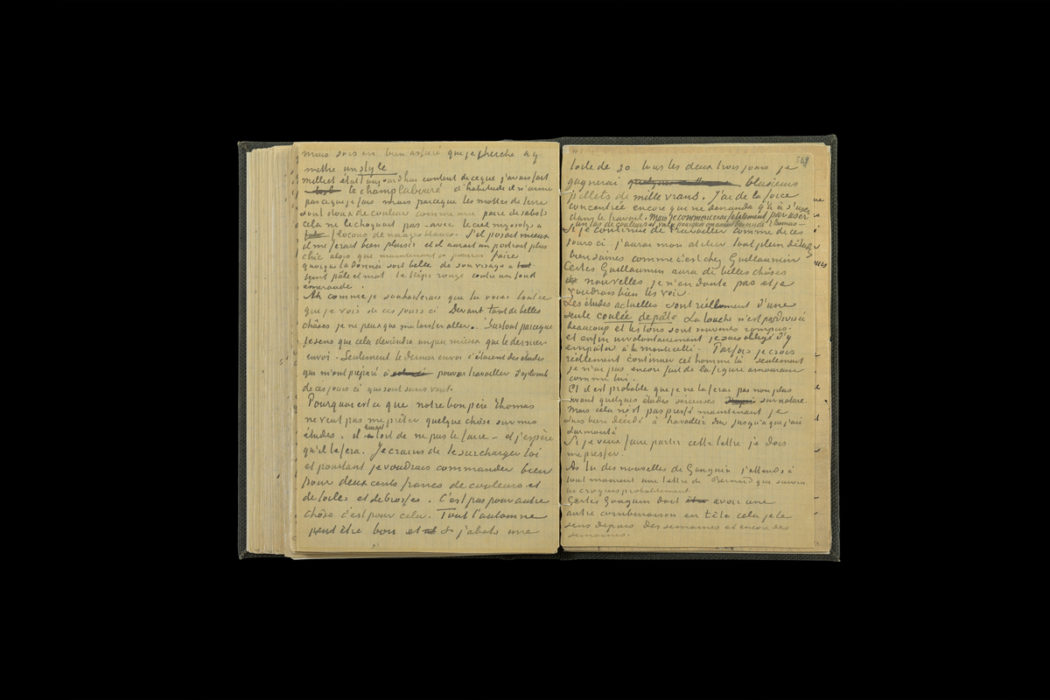 mais sois en bien assuré que je cherche à y
mettre un style
Milliet était aujourd'hui content de ce que j'avais fait
le champ labouré d'habitude il n'aime
pas ce que je fais mais parceque les mottes de terre
sont doux de couleur comme une paire de sabots
cela ne le choquait pas avec le ciel myosotis à
flocons de nuages blancs. S'il posait mieux
il me ferait bien plaisir et il aurait un portrait plus
chic alors que maintenant je pourrai faire
quoique la donnée soit belle de son visage à
teint pâle et mat le képi rouge contre un fond
émeraude.
Ah comme je souhaiterais que tu voies tout ce
que je vois de ces jours ci Devant tant de belles
choses je ne peux que me laisser aller. Surtout parceque
je sens que cela deviendra un peu mieux que le dernier
envoi. Seulement le dernier envoi c'étaient des études
qui m'ont préparé à pouvoir travailler d'aplomb
de ces jours ci qui sont sans vent.
Pourquoi est ce que notre bon père Thomas
ne veut pas me prêter quelque chose sur mes
études. il aurait tort de ne pas le faire – et j'espère
qu'il le fera. Je crains de te surcharger toi
et pourtant je voudrais commander bien
pour deux cents francs de couleurs et
de toiles et de brosses. C'est pas pour autre
chose c'est pour cela. Tout l'automne
peut être bon et si j'abats une
toile de 30 tous les deux trois jours je
gagnerai plusieurs
billets de mille francs. J'ai de la force
concentrée encore qui ne demande qu'à s'user
dans le travail. Mais je commencerai fatalement par user
un tas de couleurs et c'est pourquoi on aurait besoin de Thomas –
Si je continue de travailler comme de ces
jours ci j'aurai mon atelier tout plein d'études
bien saines comme c'est chez Guillaumin
Certes Guillaumin aura de belles choses
nouvelles je n'en doute pas et je
voudrais bien les voir
Les études actuelles sont réellement d'une
seule coulée de pâte La touche n'est pas divisée
beaucoup et les tons sont souvent rompus.
et enfin involontairement je suis obligé d'y
empâter à la monticelli. Parfois je crois
réellement continuer cet homme là seulement
je n'ai pas encore fait de la figure amoureuse
comme lui.
Et il est probable que je ne la ferai pas non plus
avant quelques études sérieuses sur nature
Mais cela n'est pas pressé maintenant je
suis bien décidé à travailler dur jusqu'à que j'aie
surmonté
Si je veux faire partir cette lettre je dois
me presser.
As tu des nouvelles de Gauguin j'attends à
tout moment une lettre de Bernard qui suivra
les croquis probablement.
Certes Gauguin doit avoir une
autre combinaison en tête cela je le
sens depuis des semaines et encore des
semaines.